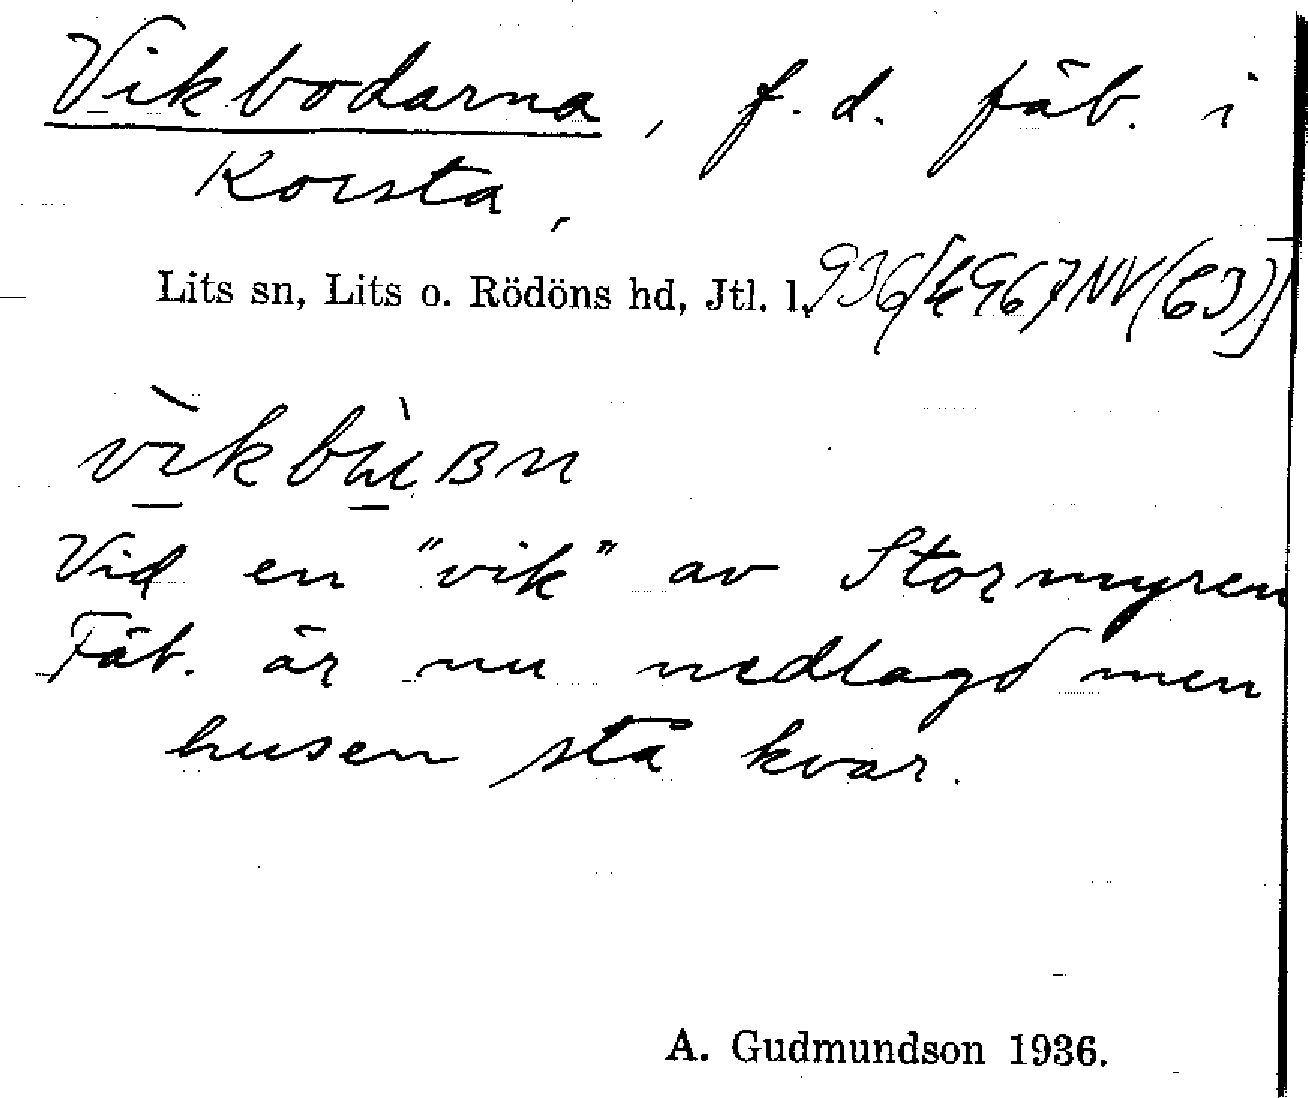 Vikbodarna, f. d. fäb. i
Korsta,
Lits sn, Lits o. Rödöns hd, Jtl. l.
Vid en "vik" av Stormyren
Fäb. är nu nedlagd men
husen stå kvar.
A. Gudmundson 1936.